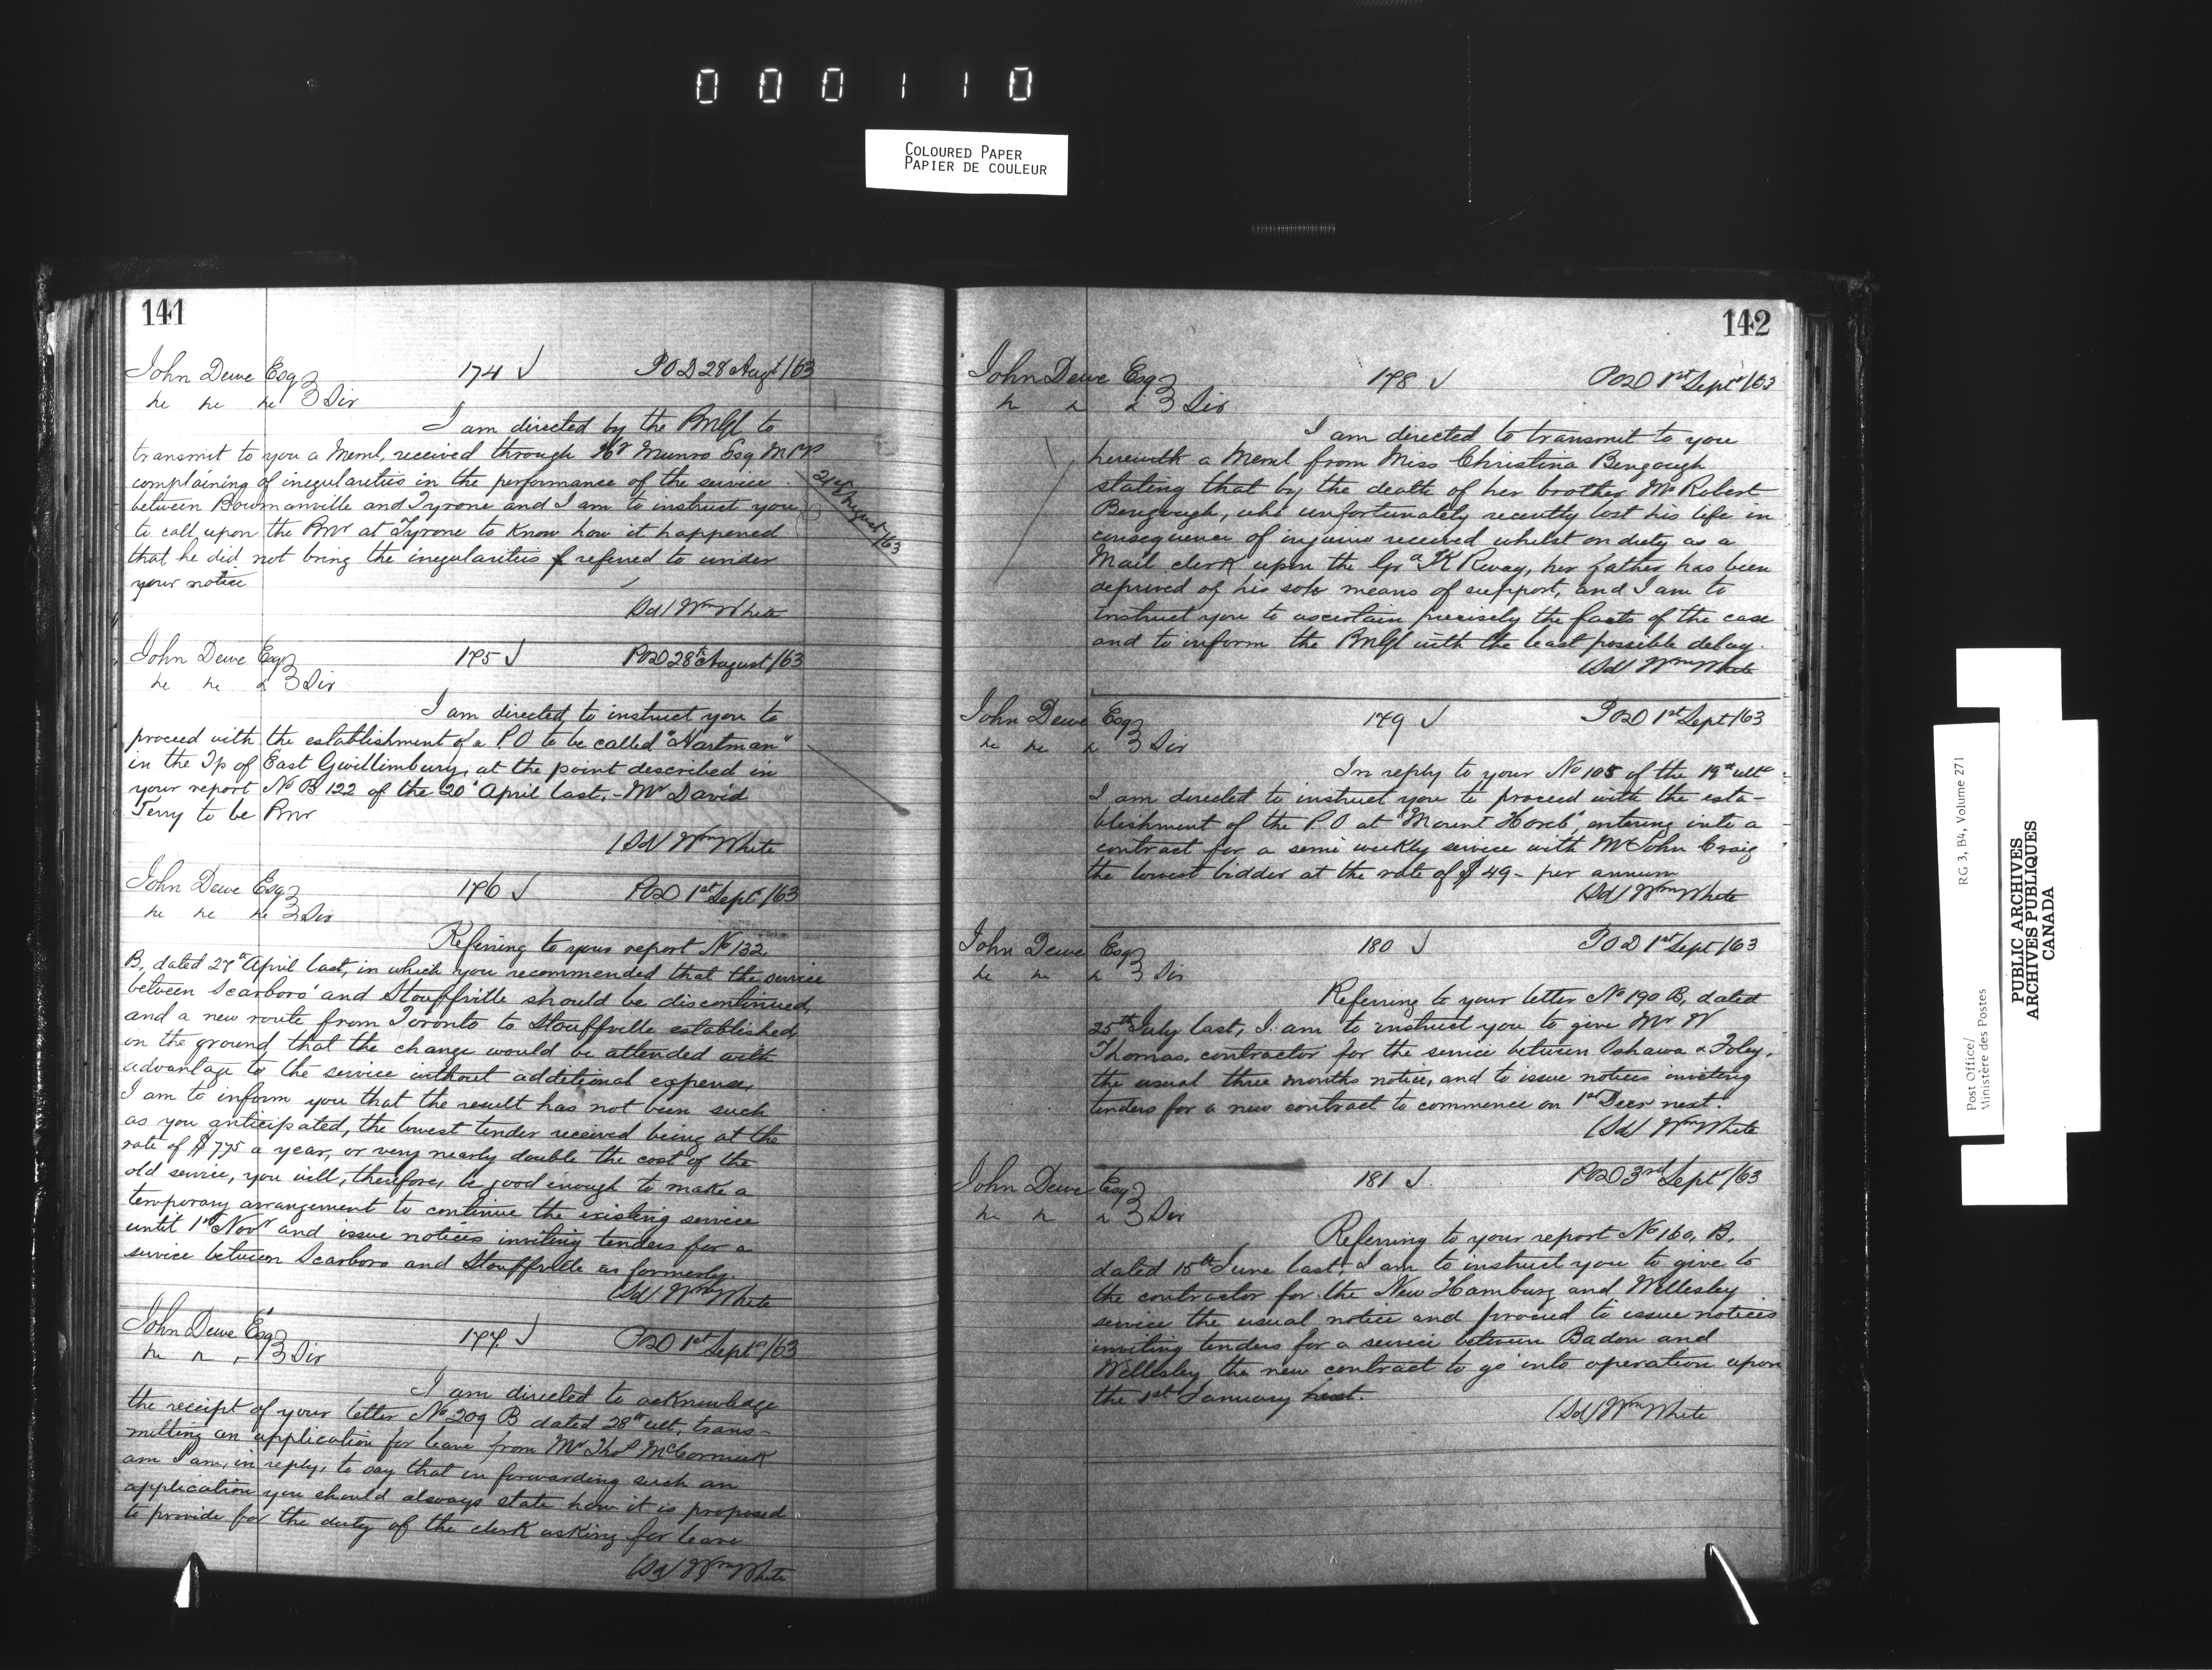 000110
COLOURED PAPER
PAPIER DE COULEUR
141
John Dewe Esq 174 POD 28 Augt /63
3 Div
I am directed by the PMGl to
transmit to you a Meml, received through Hr Munro Esq MPP
complaining of iregularities in the performance of the service
between Bowmanville and Tyrone and I am to instruct you
to call upon the PMr at Tyrone to know how it happened
that he did not bring the iregularities refered to under
your notice
(Sd/ Wm White
August /63
John Dewe Esq 175 POD 28th August /63
3 Div
I am directed, to instruct you to
proceed with the establishment of a PO to be called "Hartman"
in the Tp of East Gwillimbury, at the point described in
your report No B 122 of the 20th April last, - Mr David
Terry to be PMr
(Sd/ Wm White
John Dewe Esq 176 POD 1st Septr /63
3 Div
Referring to your report No 132,
B, dated 27th April last, in which you recommended that the service
between Scarboro' and Stouffville should be discontinued,
and a new route from Toronto to Stouffville established,
on the ground that the change would be attended with
advantage to the service without additional expense,
I am to inform you that the result has not been such
as you anticipated, the lowest tender received being at the
rate of $775 a year, or very nearly double the cost of the
old service, you will, therefore, be good enough to make a
temporary arrangement to continue the existing service
until 1st Novr and issue notices inviting tenders for a
service between Scarboro and Stouffville as formerly.
(Sd/ Wm White
John Dewe Esq 177. POD 1st Septr /63
3 Div
I am directed to acknowledge
the receipt of your letter No 209 B dated 28th ult, trans-
mitting an application for leave from Mr Thos McCormick
am I am, in reply, to say that in forwarding such an
application you should always state how it is proposed
to provide for the duty of the clerk asking for leave
(Sd/ Wm White
142
John Dewe Esq 178 POD 1st Septr /63
3 Div
I am directed to transmit to you
herewith a Meml from Miss Christina Bengough
stating that by the death of her brother Mr Robert
Bengough, who unfortunately recently lost his life in
consequence of injuries received whilst on duty as a
Mail clerk upon the Gd TK Rway, her father has been
deprived of his sole means of support, and I am to
instruct you to ascertain precisely the facts of the case
and to inform the PMGl with the least possible delay.
(Sd/ Wm White
John Dewe Esq 179 POD 1st Sept /63
3 Div
In reply to your No 105 of the 19th ulto
I am directed to instruct you to proceed with the esta-
blishment of the P.O at "Mount Horeb", entering into a
contract for a semi weekly service with Mr John Craig
the lowest bidder at the rate of $49- per annum
(Sd/ Wm White
John Dewe Esq 180 POD 1st Sept /63
3 Div
Referring to your letter No 190 B, dated
25th July last, I am to instruct you to give Mr W
Thomas, contractor for the service between Oshawa & Foley,
the usual three months notice, and to issue notices inviting
tenders for a new contract to commence on 1st Decr next.
(Sd/ Wm White
John Dewe Esq 181 POD 3rd Septr /63
3 Div
Referring to your report No 160, B,
dated 15th June last, I am to instruct you to give to
the contractor for the New Hamburg and Wellesley
service the usual notice and proceed to issue notices
inviting tenders for a service between Baden and
Wellesley the new contract to go into operation upon
the 1st January next.
(Sd/ Wm White
RG 3, B4, Volume 271
Post Office/
Ministère des Postes
PUBLIC ARCHIVES
ARCHIVES PUBLIQUES
CANADA